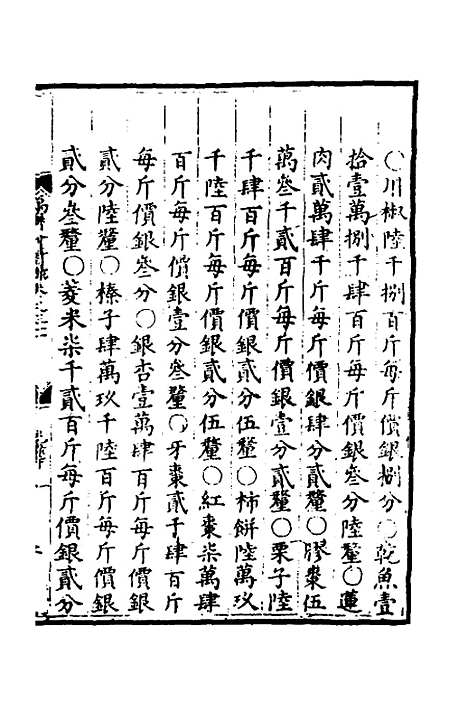 ○川椒陸千捌百斤每斤價銀捌分○乾魚壹
拾壹萬捌千肆百斤每斤價銀叄分陸釐○蓮
肉貳萬肆千斤每斤價銀肆分貳釐○膠棗伍
萬叄千貳百斤每斤價銀壹分貳釐○栗子陸
千肆百斤每斤價銀貳分伍釐○柿餅陸萬玖
千陸百斤每斤價銀貳分伍釐○紅棗柒萬肆
百斤每斤價銀壹分叄釐○牙棗貳千肆百斤
每斤價銀叄分○銀杏壹萬肆百斤每斤價銀
貳分陸釐○榛子肆萬玖千陸百斤每斤價銀
貳分叄釐○菱米柒千貳百斤每斤價銀貳分